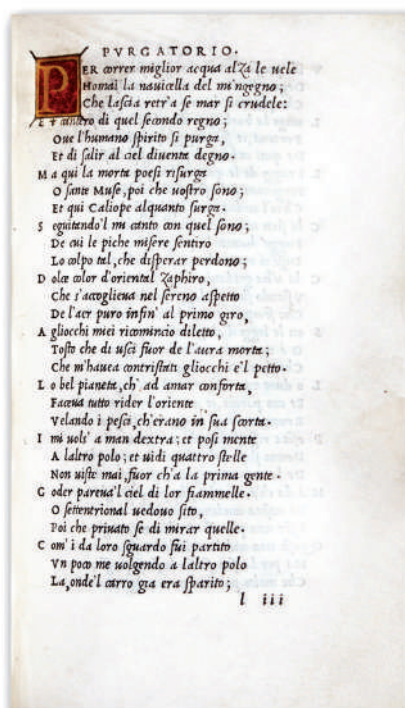 PVRGATORIO.
PER correr miglior acqua alza le uele
Homai la nauicella del mi'ngegno;
Che lascia retr'a se mar si crudele:
E t cantero di quel secondo regno;
Oue l'humano spirito si purga,
Et di salir al ciel diuenta degno.
M a qui la morta poesi risurga
O sante Muse, poi che uostro sono;
Et qui Caliope alquanto surga.
S eguitando'l mi canto con quel sono;
De cui le piche misere sentiro
Lo colpo tal, che disperar perdono;
D olce color d'oriental Zaphiro,
Che s'accoglieua nel sereno aspetto
De l'aer puro infin' al primo giro,
A gliocchi miei ricomincio diletto,
Tosto che di usci fuor de l'aura morta;
Che m'hauea contristati gliocchi e'l petto.
L o bel pianeta, ch' ad amar conforta,
Faceua tutto rider l'oriente
Velando i pesci, ch'erano in sua scorta.
I mi uols' a man dextra; et posi mente
A laltro polo; et uidi quattro stelle
Non uiste mai, fuor ch'a la prima gente.
G oder pareua'l ciel di lor fiammelle.
O settentrional uedouo sito,
Poi che priuato se di mirar quelle.
C om' i da loro sguardo fui partito
Vn poco me uolgendo a laltro polo
La, onde'l carro gia era sparito;
l iii